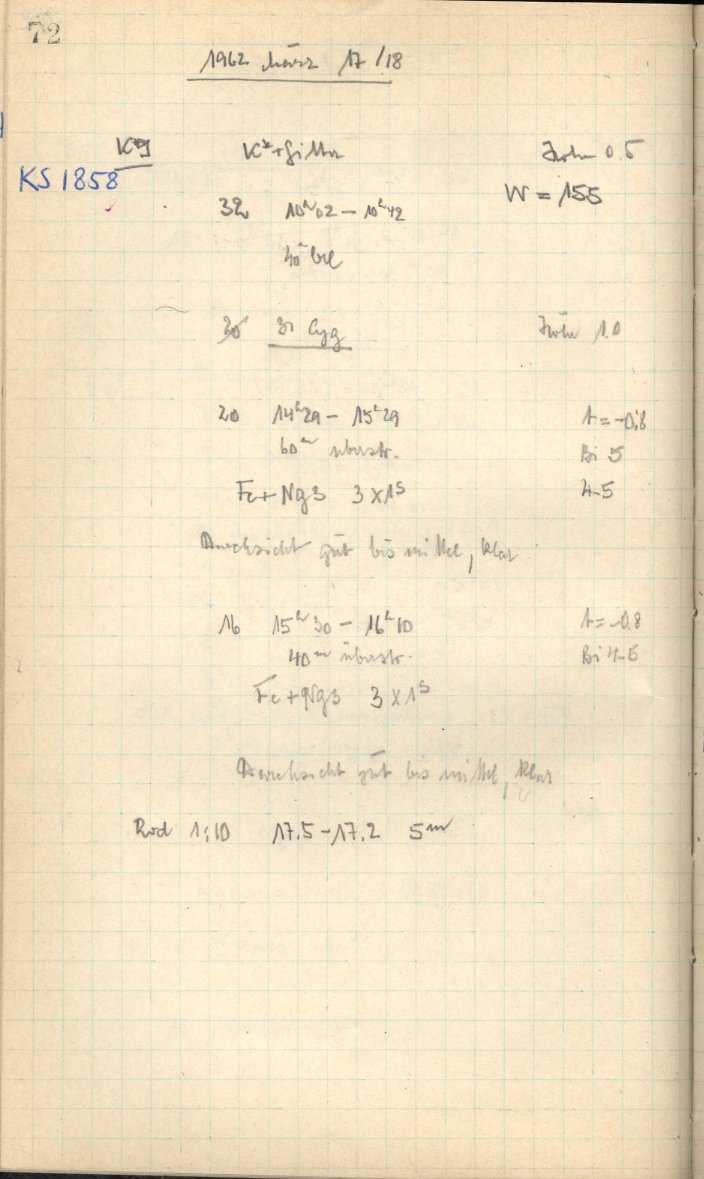 72
1962 März 17/18
K*g K*+Gitter 0.5
KS 1858 W = 155
32 10ʰ02 - 10ʰ42
40ᵐ bel
30 31 Cyg 1.0
20 14ʰ29 - 15ʰ29 t = -0,8
60ᵐ überstr. Bi 5
Fe+Ng3 3x1ˢ 4-5
Durchsicht gut bis mittel, klar
16 15ʰ30 - 16ʰ10 t = -0.8
40ᵐ überstr. Bi 4-5
Fe+Ng3 3x1ˢ
Durchsicht gut bis mittel, klar
Rod 1:10 17.5-17.2 5ᵐ